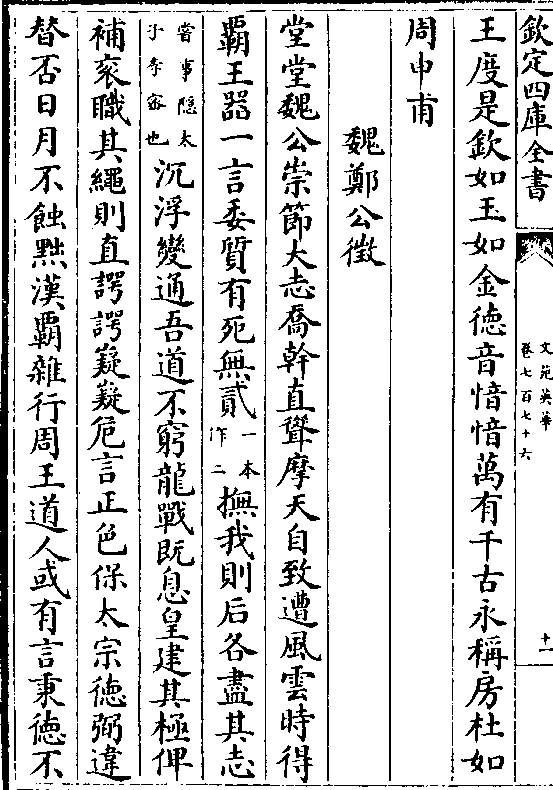 欽定四庫全書
文苑英華
卷七百七十六
十一
王度是欽如玉如金徳音愔愔萬有千古永稱房杜如
周申甫
魏鄭公徴
堂堂魏公崇節大志喬幹直聳摩天自致遭風雲時得
霸王器一言委質有死無貳一本作二撫我則后各盡其志
嘗事隠太子李密也沉浮變通吾道不窮龍戰既息皇建其極俾
補衮職其繩則直諤諤嶷嶷危言正色保太宗徳弼違
替否日月不蝕㸃漢覇雜行周王道人或有言秉徳不